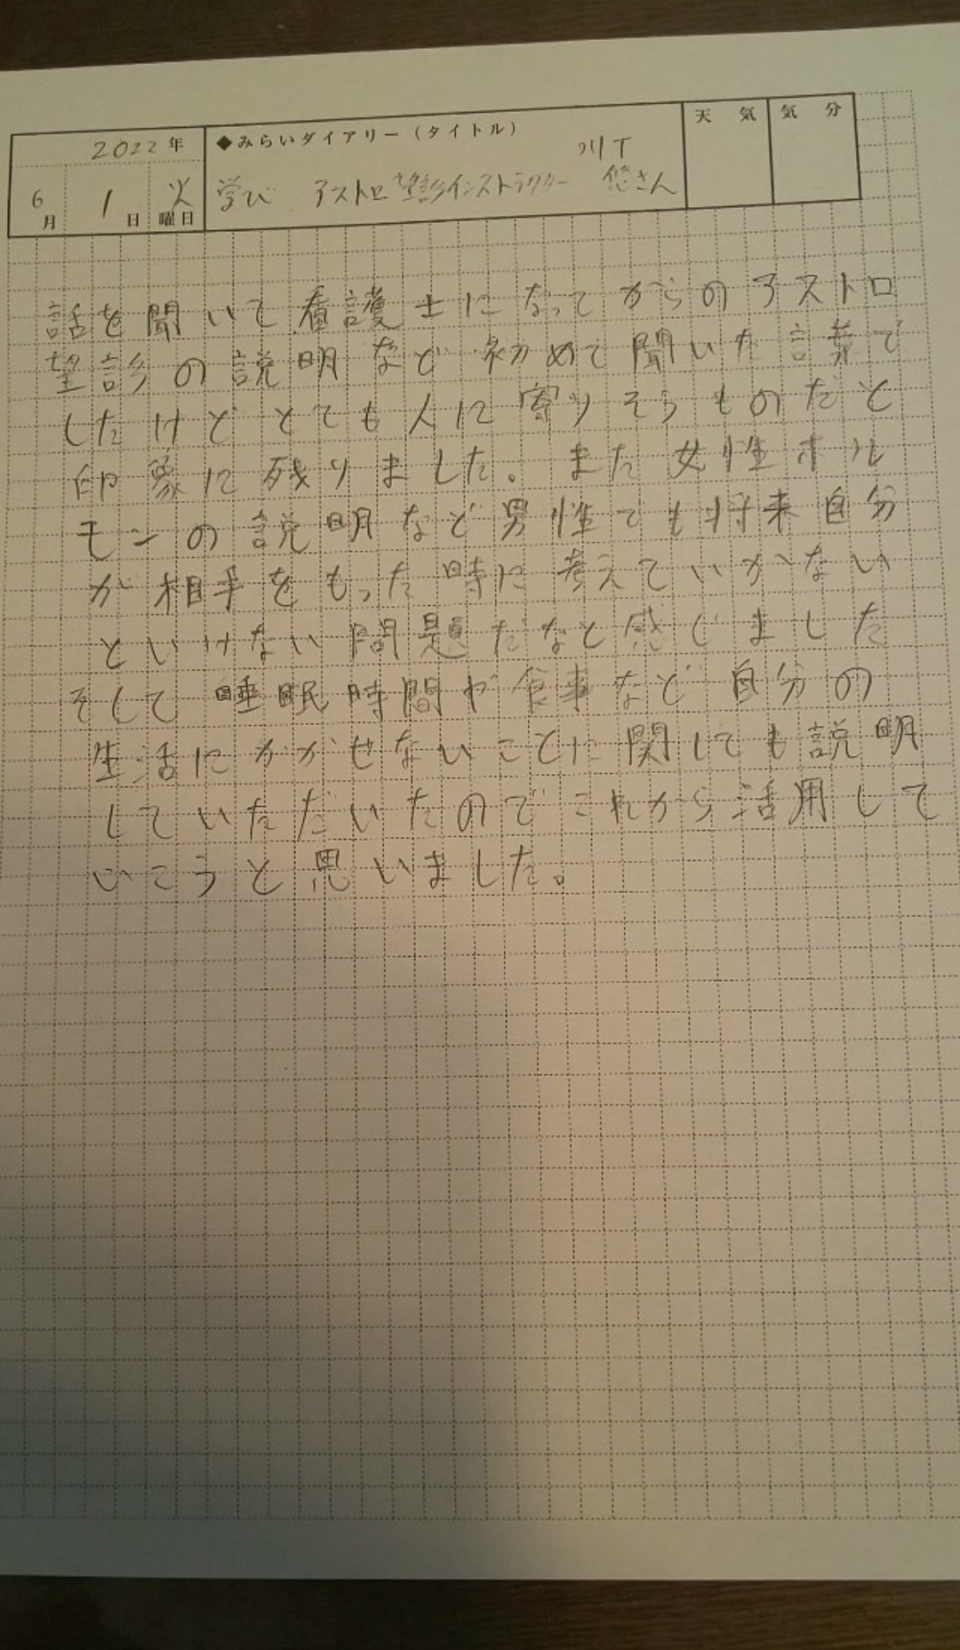 2022年
◆みらいダイアリー（タイトル）
天 気
気 分
6月 1日 火曜日
川下
学び アストロ望診インストラクター 悠さん
話を聞いて看護士になってからのアストロ
望診の説明など初めて聞いた言葉で
したけどとても人に寄りそうものだと
印象に残りました。また女性ホル
モンの説明など男性でも将来自分
が相手をもった時に考えていかない
といけない問題だなと感じました
そして睡眠時間や食事など自分の
生活にかかせないことに関しても説明
していただいたのでこれから活用して
いこうと思いました。